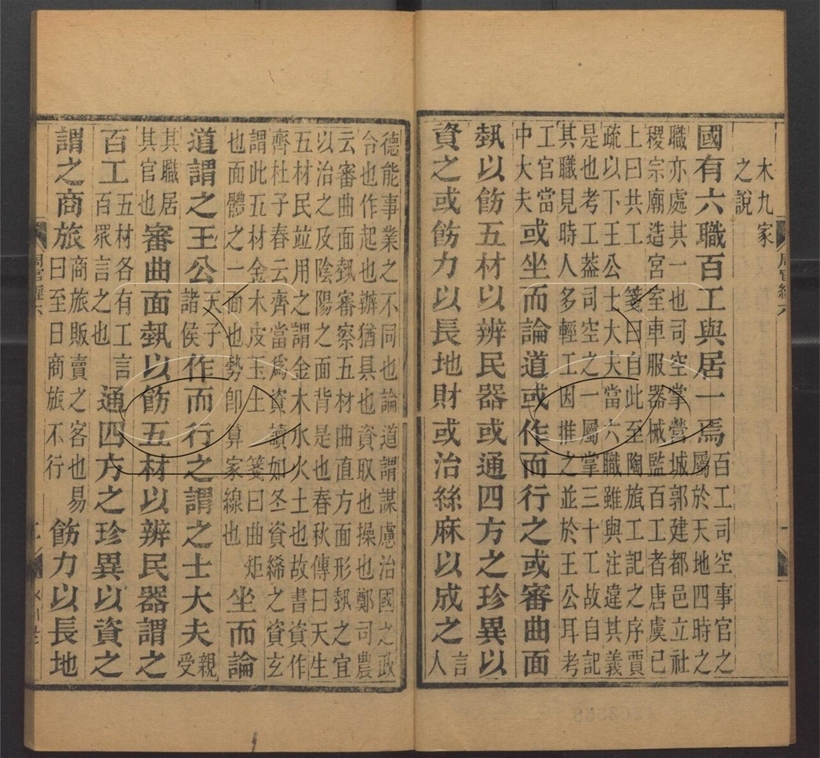 木九家
之說
國有六職百工與居一焉
百工司空事官之
屬於天地四時之
職亦處其一也司空掌營城郭建都邑立社
稷宗廟造宮室車服器械監百工者唐虞已
上曰共工 箋曰自此至陶旅工記之序賈
疏以下王公士大夫當六職雖與注違其義
是也考工葢司空之一屬掌三十工故自記
其職見時人多輕工因推之並於王公耳考
工官當
中大夫
或坐而論道或作而行之或審曲面
埶以飭五材以辨民器或通四方之珍異以
資之或飭力以長地財或治絲麻以成之
言
人
德能事業之不同也論道謂謀慮治國之政
令也作起也辨猶具也資取也操也鄭司農
云審曲面埶審察五材曲直方面形埶之宜
以治之及陰陽之面背是也春秋傳曰天生
五材民並用之謂金木水火土也故書資作
齊杜子春云齊當爲資讀如冬資絺之資玄
謂此五材金木皮玉土 箋曰曲矩
也面體之一面也勢卽算家線也
坐而論
道謂之王公
天子
諸侯
作而行之謂之士大夫
親
受
其職居
其官也
審曲面埶以飭五材以辨民器謂之
百工
五材各有工言
百眾言之也
通四方之珍異以資之
謂之商旅
商旅販賣之客也易
曰至日商旅不行
飭力以長地
周官經六